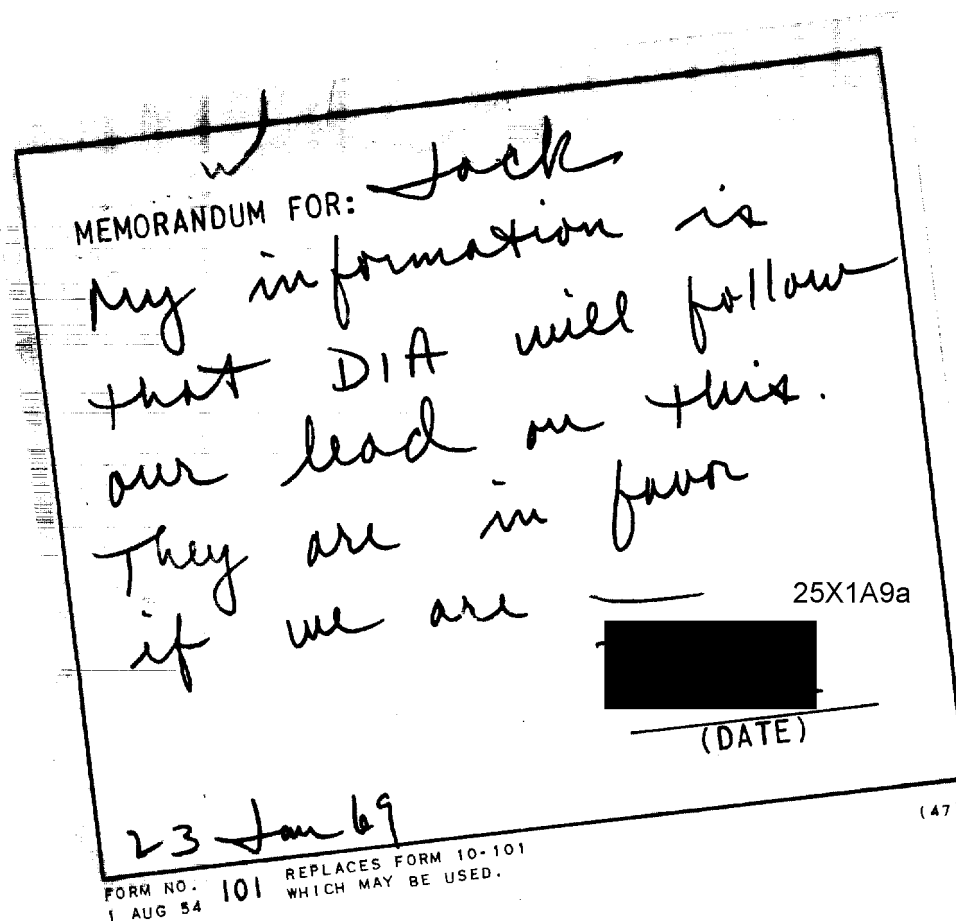 MEMORANDUM FOR: Jack
My information is
that DIA will follow
our lead on this.
They are in favor
if we are —
25X1A9a
(DATE)
23 Jan 69
(47
FORM NO. 101 REPLACES FORM 10-101
1 AUG 54 WHICH MAY BE USED.